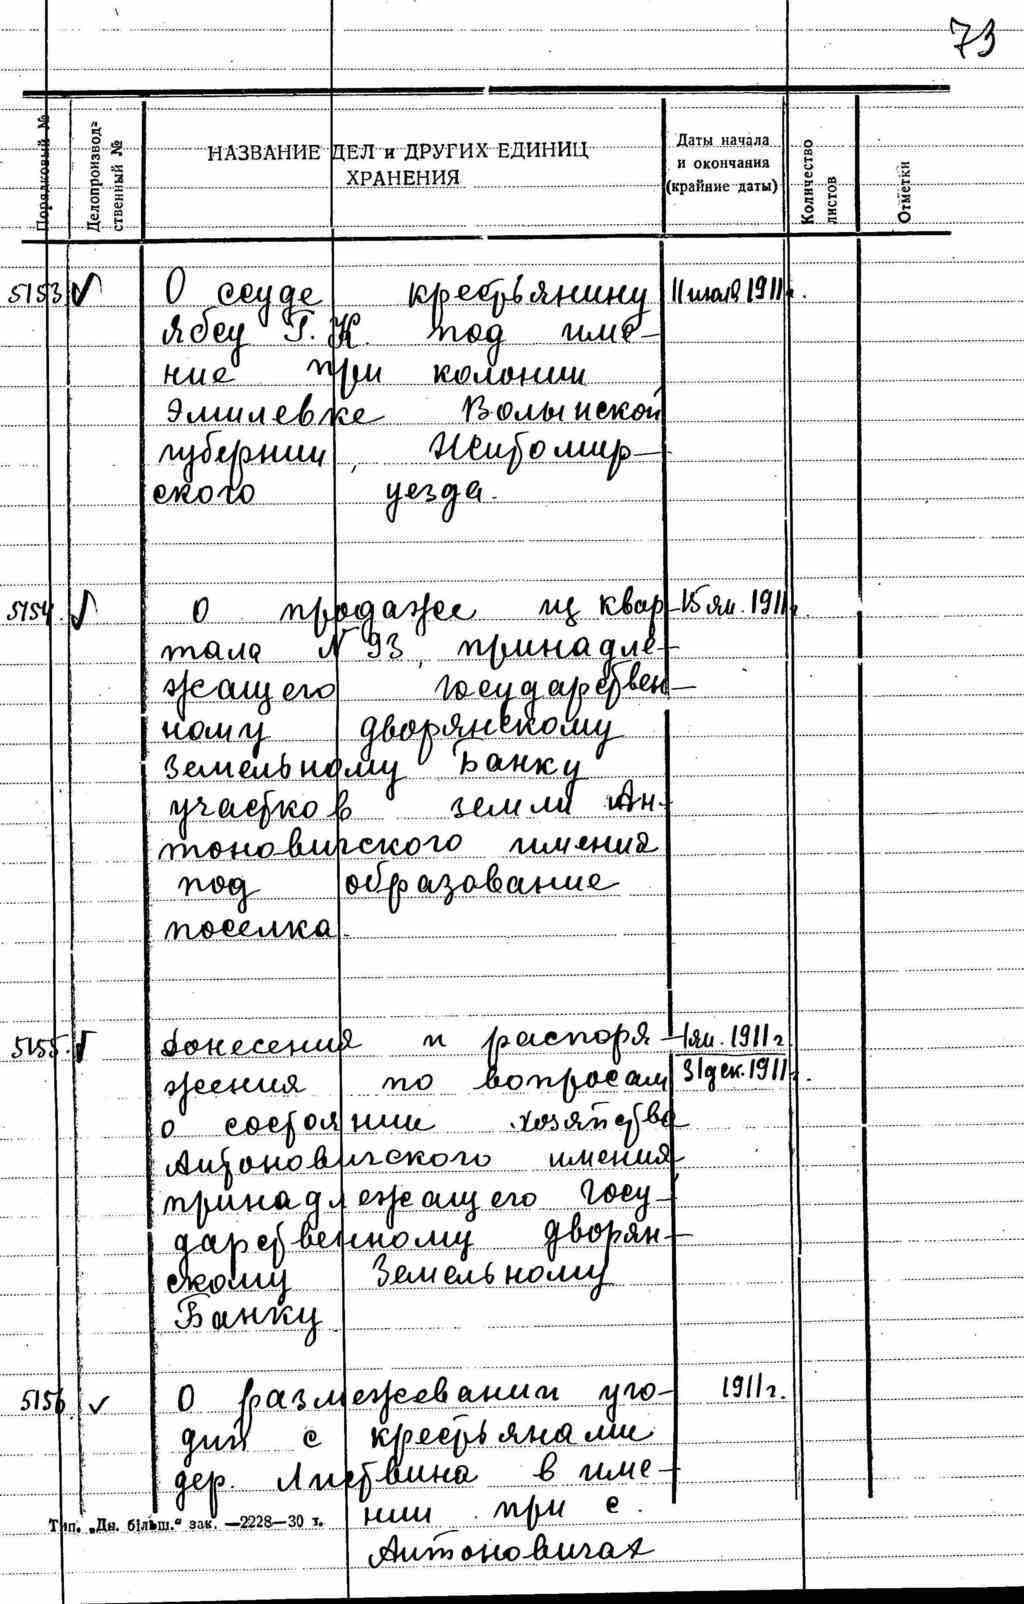 73
Порядковый №
Делопроизвод-
ственный №
НАЗВАНИЕ ДЕЛ и ДРУГИХ ЕДИНИЦ
ХРАНЕНИЯ
Даты начала
и окончания
(крайние даты)
Количество
листов
Отметки
5153 О ссуде крестьянину 11 1911г.
Ябсу Г. К. под име-
ние при колонии
Эмилевке Волынской
губернии, Житомир-
ского уезда.
5154. О продаже из квар- 15 ян. 1911г.
тала N 93, принадле-
жащего государствен-
ному дворянскому
Земельному Банку
участков земли Ан-
тоновичского имения
под образование
поселка.
5155. Донесения и распоря- 1 ян. 1911г
жения по вопросам 31 дек. 1911г.
о состоянии хозяйства
Антоновичского имения
принадлежащего Госу-
дарственному дворян-
скому Земельному
Банку
5156 О размежевании уго- 1911г.
дий с крестьянами
дер. Листвина в име-
нии при с.
Антоновичах
Тип. „Дн. більш.“ зак. —2228—30 т.